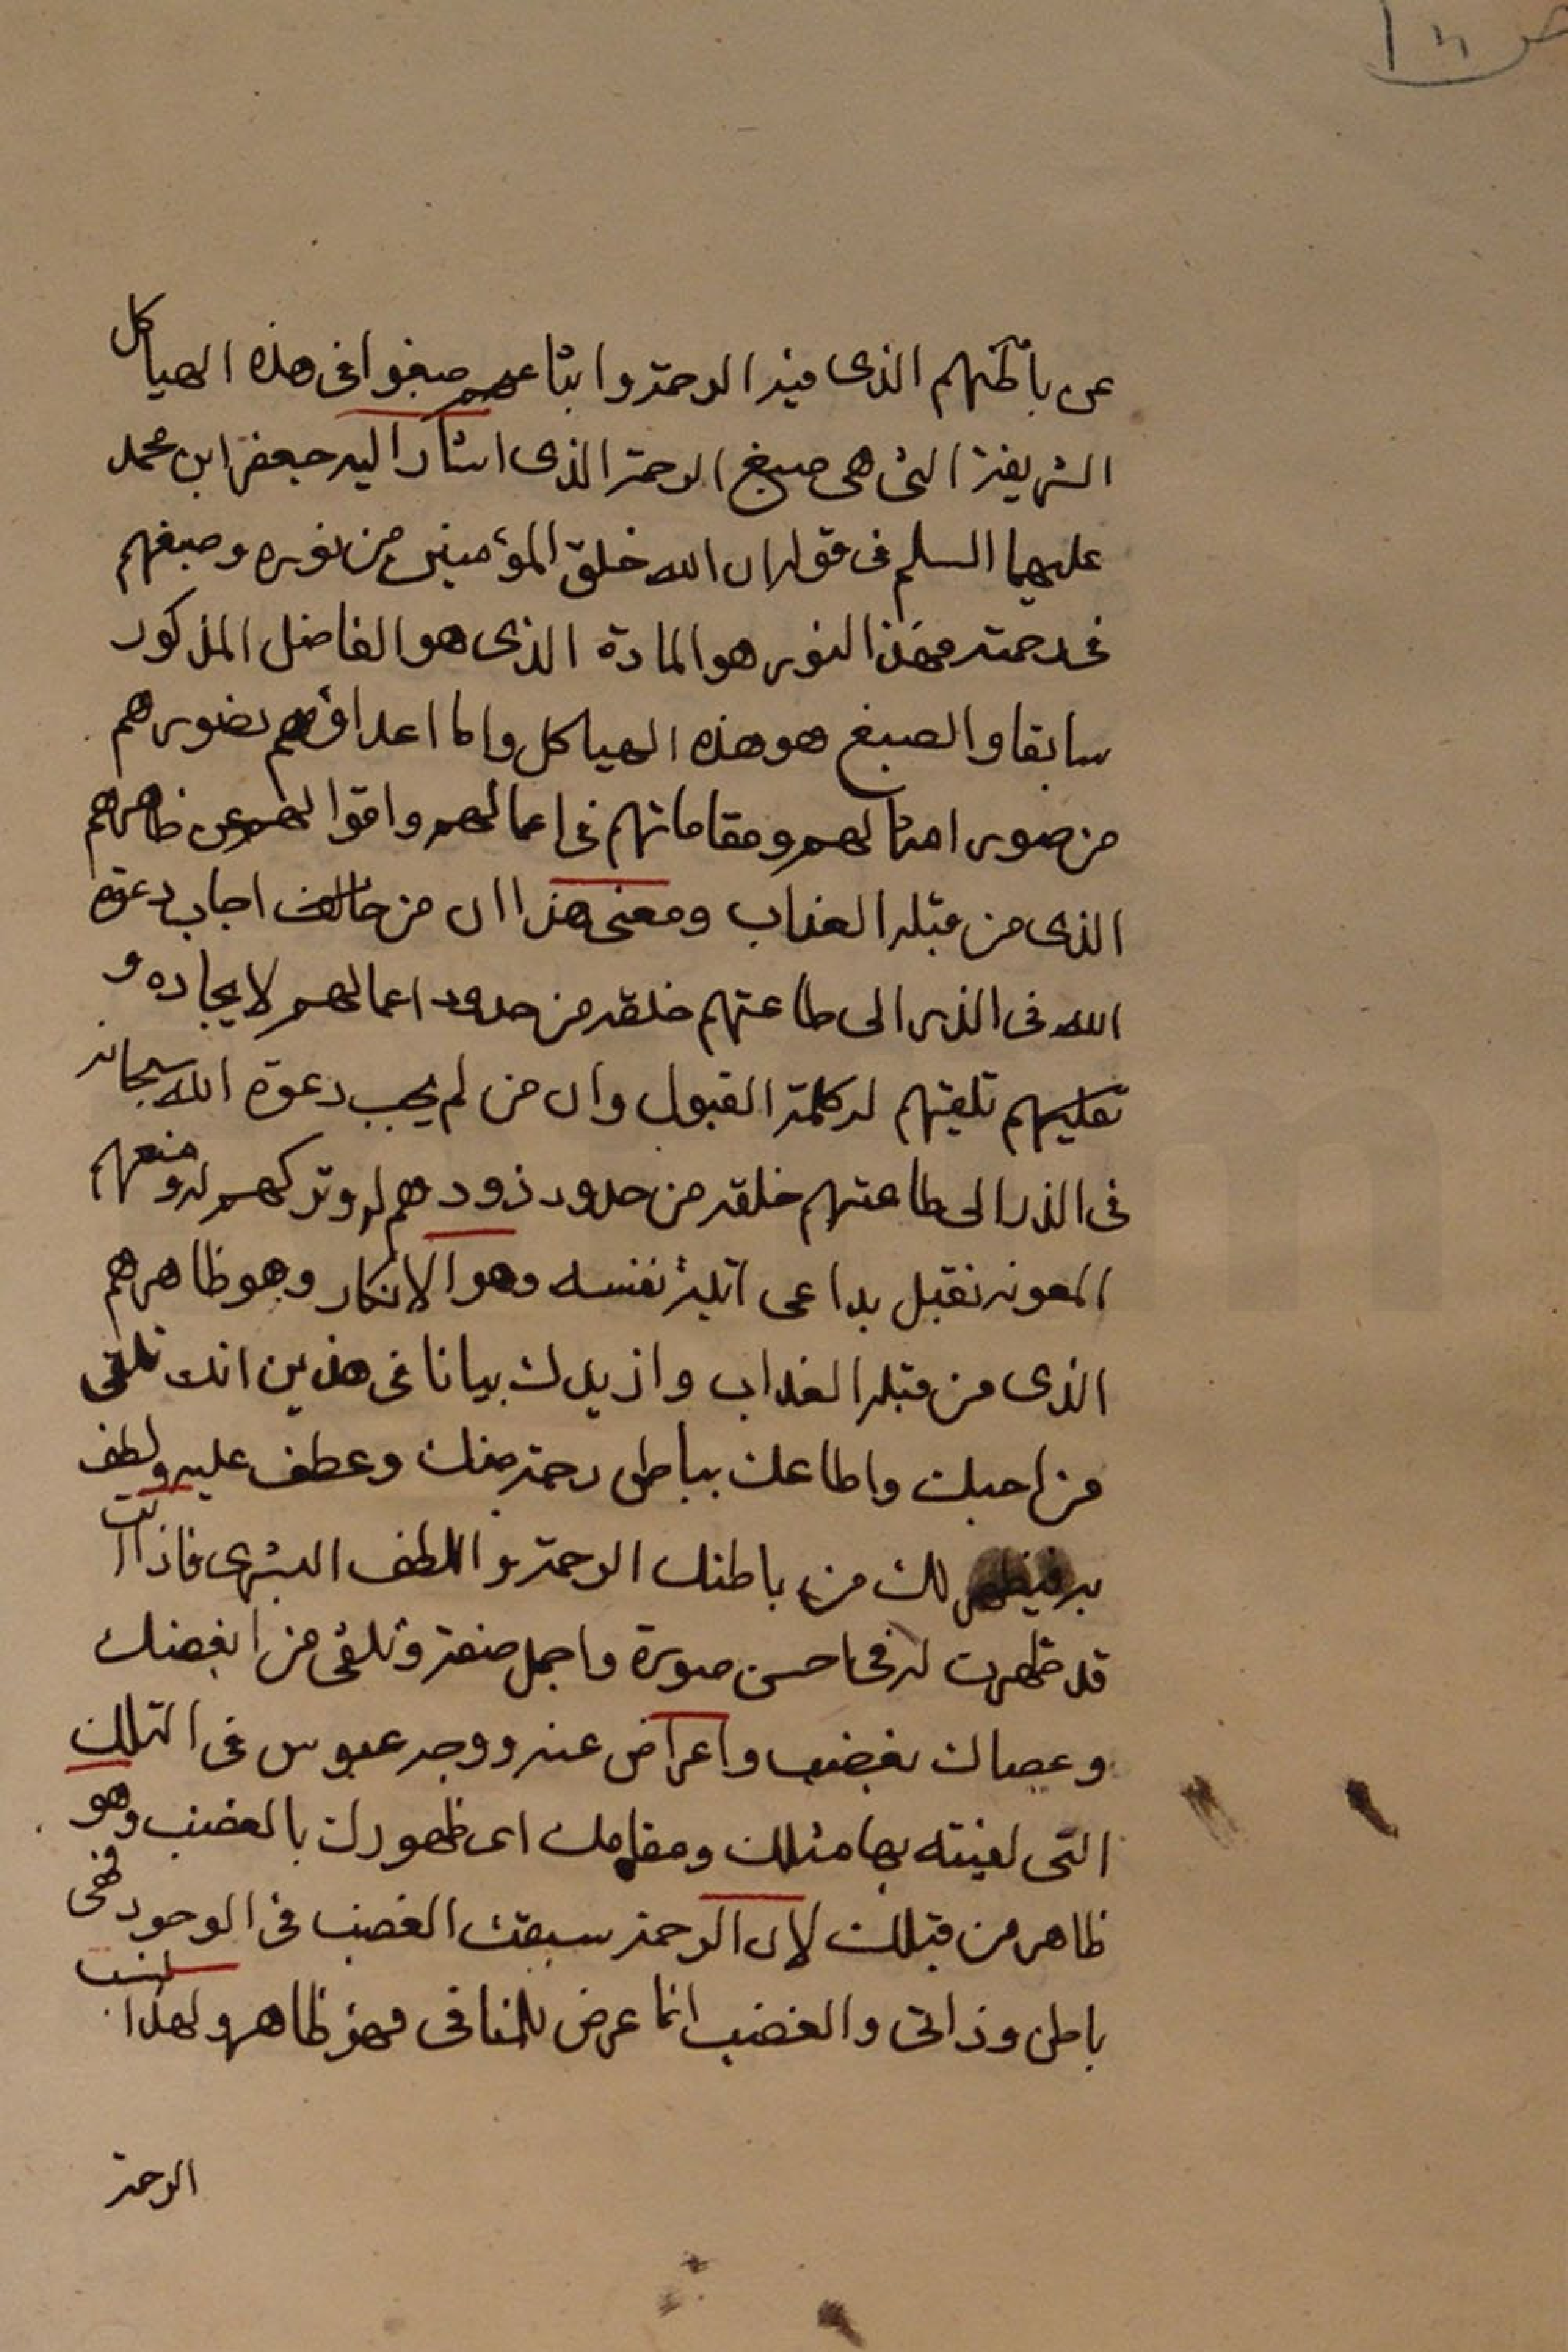 عن باطنهم الذى فيه الرحمة واتباعهم صبغوا فى هذه الهياكل
الشريفة التى هى صبغ الرحمة الذى اشار اليه جعفر ابن محمد
عليهما السلم فى قوله ان الله خلق المؤمنين من نوره وصبغهم
فى رحمته فهذا النور هو المادة الذى هو الفاضل المذكور
سابقا والصبغ هو هذه الهياكل واما اعداؤهم نصورهم
من صور امثالهم ومقاماتهم فى اعمالهم واقوالهم عن ظاهرهم
الذى من قبله العذاب ومعنى هذا ان من اجاب دعوة
الله فى الذر الى طاعتهم خلقه من حدود اعمالهم لايجاده و
تلقيهم له كلمة القبول وان من لم يجب دعوة الله سبحانه
فى الذر الى طاعتهم خلقه من حدود ذودهم له وتركهم له ومنعهم
المعونه نقبل بداعى نفسه وهو الانكار وهو ظاهرهم
الذى من قبله العذاب وازيدك بيانا فى هذين انك تلقى
من احبك واطاعك بباطن رحمة منك وعطف عليه ولطف
به فيظهر لك من باطنك الرحمة واللطف البشرى فاذا انت
قد ظهرت له فى احسن صورة واجمل صنعة وتلقى من ابغضك
وعصاك بغضب واعراض عنه ووجه عبوس فى التلك
التى لقيته بها مثلك ومقامك اى ظهورك بالغضب وهو
ظاهر من قبلك لان الرحمة سبقت الغضب فى الوجود فهى
باطن وذاتى والغضب انما عرض للمنافى فهو ظاهر ولهذا
الرحمة